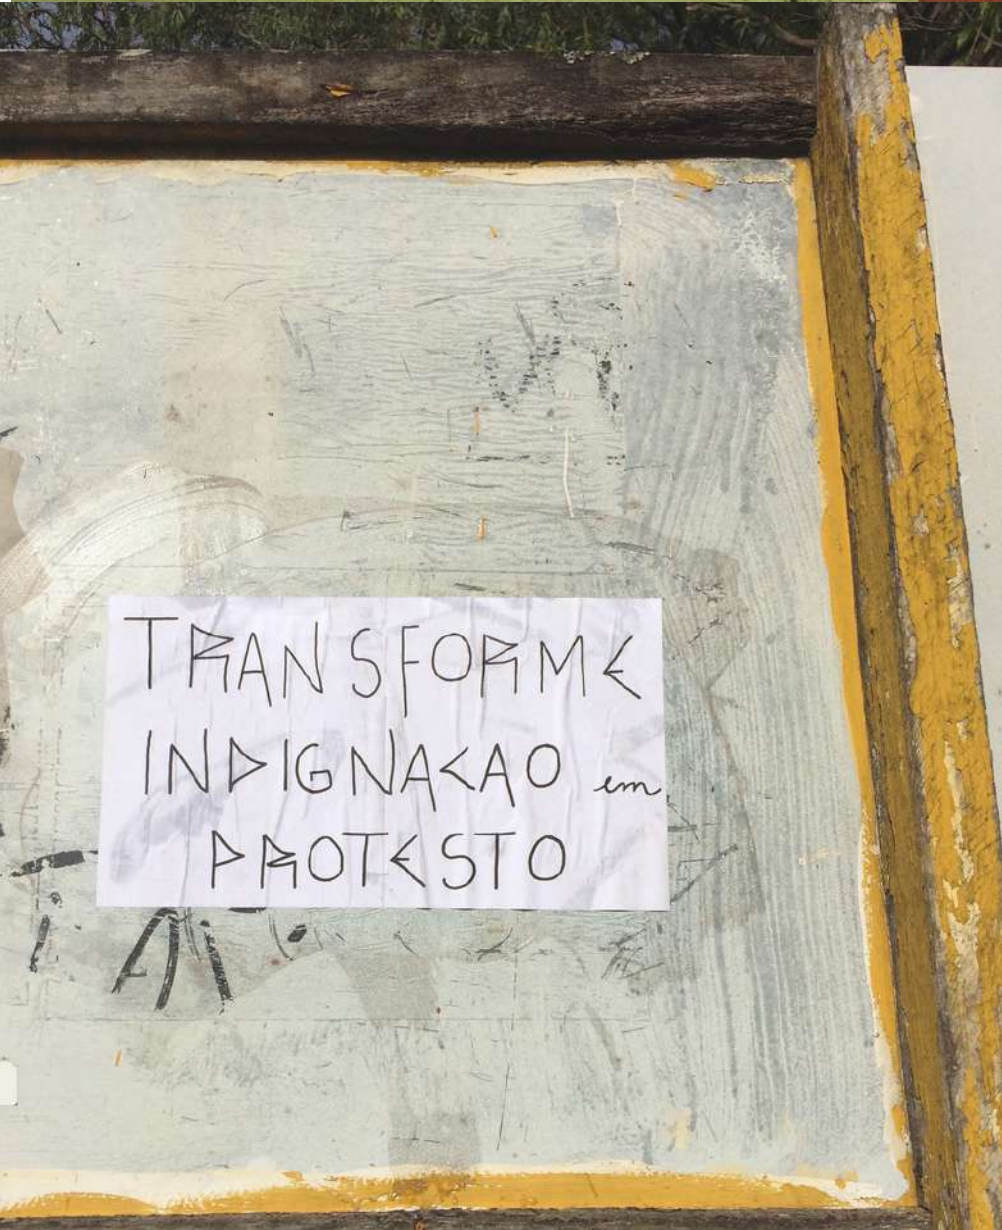 TRANSFORME
INDIGNACAO em
PROTESTO